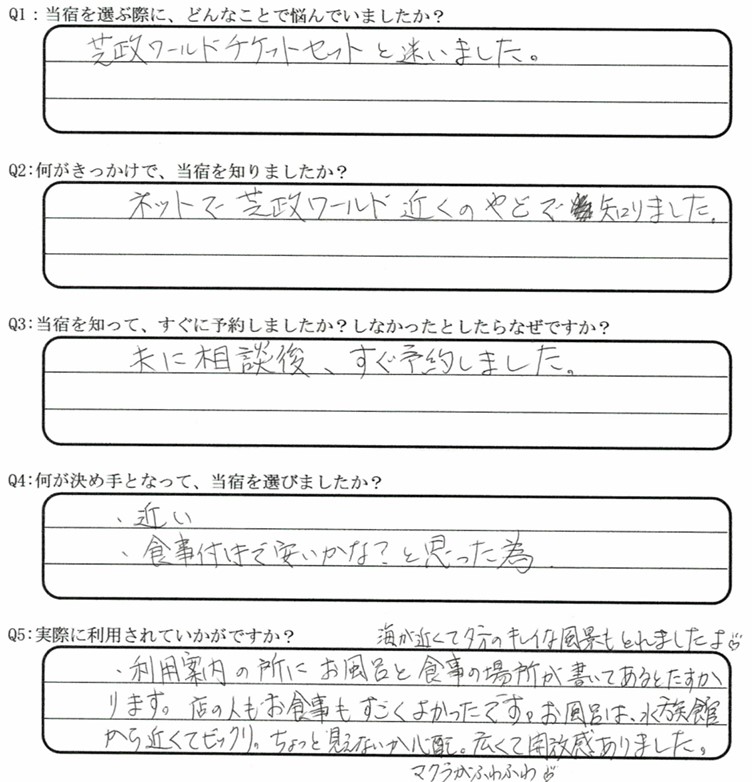 Q1：当宿を選ぶ際に、どんなことで悩んでいましたか？
芝政ワールドチケットセットと迷いました。
Q2:何がきっかけで、当宿を知りましたか？
ネットで芝政ワールド近くのやどで知りました。
Q3:当宿を知って、すぐに予約しましたか？しなかったとしたらなぜですか？
夫に相談後、すぐ予約しました。
Q4:何が決め手となって、当宿を選びましたか？
・近い
・食事付きで安いかな？と思った為.
Q5:実際に利用されていかがですか？
海が近くて夕方のキレイな風景もとれましたよ
・利用案内の所にお風呂と食事の場所が書いてあるとたすか
ります。店の人もお食事もすごくよかったです。お風呂は、水族館
から近くてビックリ。ちょっと見えないか心配。広くて開放感ありました。
マクラがふわふわ